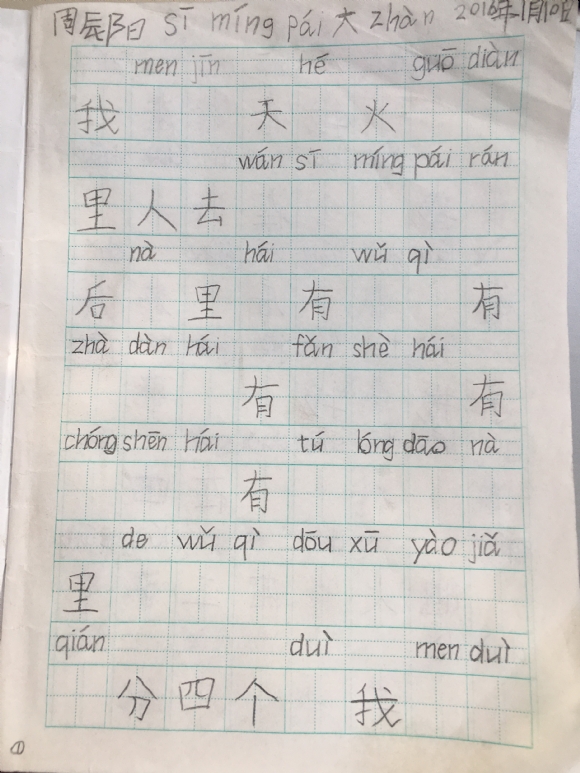 周辰阳 sī míng pái 大 zhàn 2016年1月10日
men jīn hē guō diàn
我 天 火
wán sī míng pái rán
里 人 去
nà hái wǔ qì
后 里 有 有
zhà dàn hái fǎn shè hái
有 有
chóng shēn hái tú lóng dāo nà
有
de wǔ qì dōu xū yào jiǎ
里
qián duì men duì
分 四 个 我
①